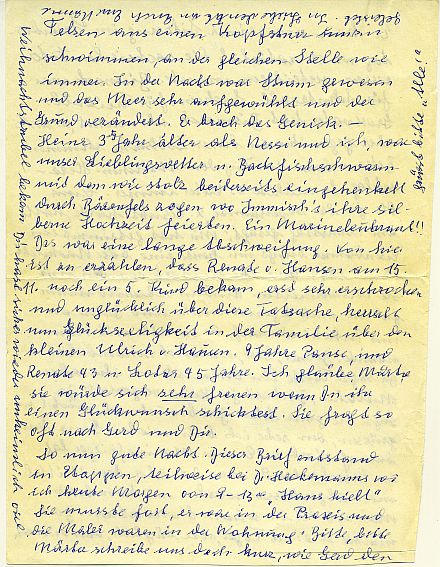 Felsen aus einen Kopfstner
schwimmen, an der gleichen Stelle wie
immer. In der Nacht war Sturm gewesen
und das Meer sehr aufgewühlt und der
Grund verändert. Er brach das Genick. –
Heinz 3 Jahr älter als Nessi und ich, war
unser Lieblingsvetter u. Backfischschwarm
und dem wir stolz beiderseits eingehenkelt
durch Bärenfels zogen wo Immisch's ihre sil-
berne Hochzeit feierten. Ein Marineleutnant!!
Das war eine lange Abschweifung. Von hier
ist zu erzählen, dass Renate v. Hansen am 15.
11. noch ein 5. Kind bekam, erst sehr erschrocken
und unglücklich über diese Tatsache, herrscht
nun Glückseligkeit in der Familie über den
kleinen Ulrich v. Hansen. 9 Jahre Pause, und
Renate 43 u. 45 Jahre. Ich glaube, Märta,
sie würde sich sehr freuen wenn Du ihr
einen Glückwunsch schicktest. Sie fragt so
oft nach Gerd und Dir.
So nun gute Nacht. Dieser Brief entstand
in Etappen, teilweise bei Dr. Heckemanns wo
ich heute Morgen von 9–13 "Haus hielt"
Sie musste fort, er war in der Praxis und
die Maler waren in der Wohnung! Bitte, bitte
Märta schreibe uns doch kurz, wie Gerd den
Weihnachtstrubel bekam. Du hast sicher wieder viel
grüsst bitte "Alle!"